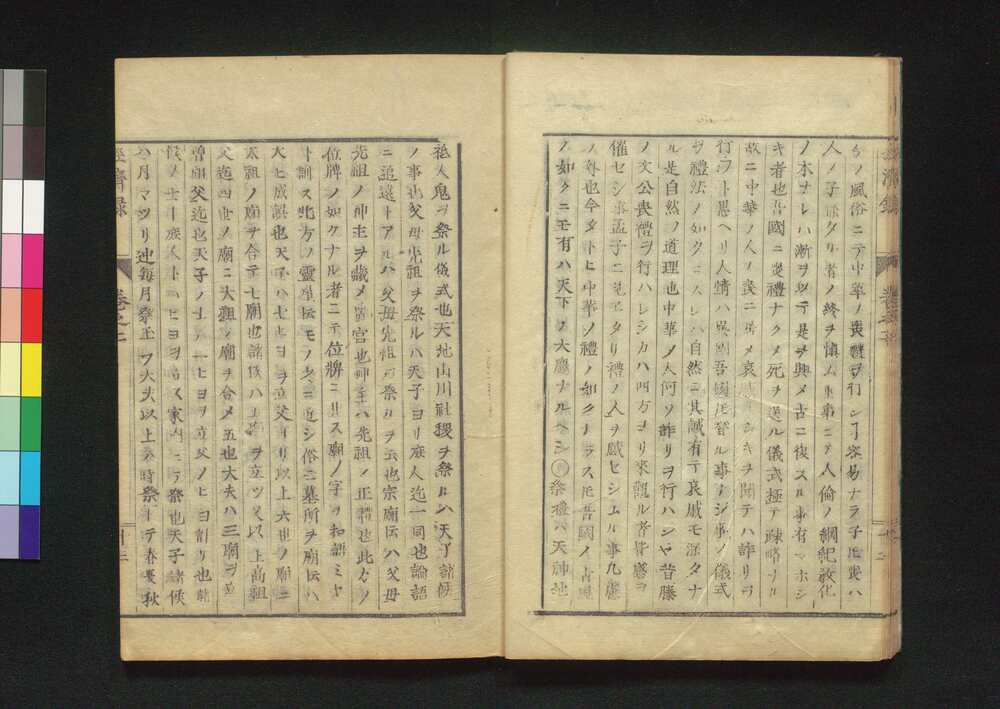 ノ風俗ニテ中華ノ喪禮ヲ行ンヿ容易ナラ子𪜈喪ハ
人ノ子孫タル者ノ終ヲ慎ム重事ニテ人倫ノ綱紀教化
ノ本ナレハ漸ヲ以テ是ヲ興メ古ニ復スル事有マホシ
キ者也吾國ニ喪禮ナクメ死ヲ送ル儀式極テ疎略ナル
故ニ中華ノ人ノ喪ニ居メ哀戚シキヲ聞テハ詐リヲ
行フト思ヘリ人情ハ異國吾國𪜈替ル事ナシ事ノ儀式
ヲ禮法ノ如クニスレハ自然ニ其誠有テ哀戚モ深クナ
ル是自然ノ道理也中華ノ人何ソ詐リヲ行ハンヤ昔滕
ノ文公喪禮ヲ行ハレシカハ四方ヨリ來觀ル者皆感ヲ
催セシ事孟子ニ見エタリ禮ノ人ヲ感セシムル事九
ノ尋也今タトヒ中華ノ禮ノ如クナラス𪜈昔國ノ古風
ノ如クニモ有ハ天下ノ大慶ナルヘシ○祭禮ハ天神地
經濟錄 卷之二
祗人鬼ヲ祭ル儀式也天地山川社稷ヲ祭ルハ天子諸侯
ノ事也父母先祖ヲ祭ルハ天子ヨリ庶人迄一同也論語
ニ追遠トアルハ父母先祖ノ祭ヲ云也宗廟𪜈ハ父母
先祖ノ神主ヲ藏メ置宮也神主ハ先祖ノ正體也此方ノ
位牌ノ如クナル者ニテ位牌ニ非ス廟ノ字ヲ和訓ミヤ
ト訓ス此方ノ靈屋𪜈モノ少ニ近シ俗ニ墓所ヲ廟𪜈ハ
大ヒ成誤也天子ハ七ヒヨヲ立父ヨリ以上六世ノ廟ニ
太祖ノ廟ヲ合テ七廟也諸侯ハ五廟ヲ立ツ父以上高祖
父迄四世ノ廟ニ大祖ノ廟ヲ合メ五也大夫ハ三廟ヲ立
曽祖父迄也天子ノ士ハ一ヒヨヲ立父ノヒヨ計リ也諸
侯ノ士ト庶人トハヒヨヲ立ス家内ニテ祭也天子諸侯
ハ月マツリ迚毎月祭玉フ大夫以上ハ時祭トテ春夏秋